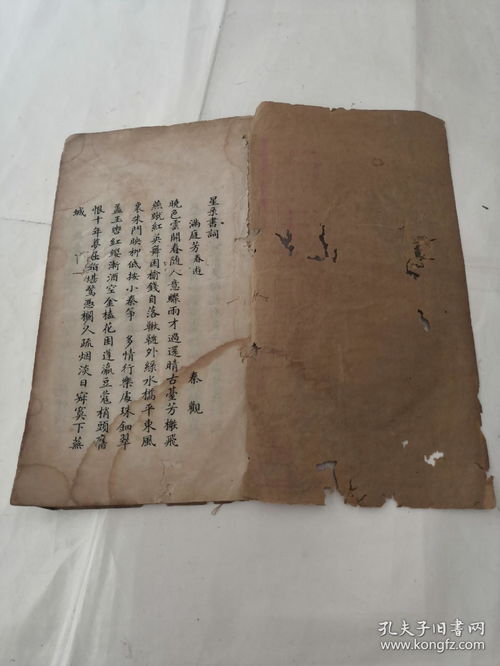 星書詞
滿庭芳春遊
秦觀
曉色雲開春随人意驟雨才過還晴古臺芳榭飛
燕蹴紅英舞困榆錢自落鞦韆外綠水橋平東風
裏朱門映柳低按小秦箏 多情行樂處珠鈿翠
蓋玉轡紅纓漸酒空金榼花困蓬瀛豆蔻梢頭舊
恨十年夢屈指堪驚憑欄久疏烟淡日寂寞下蕪
城
孔夫子旧书网
www.kongfz.com